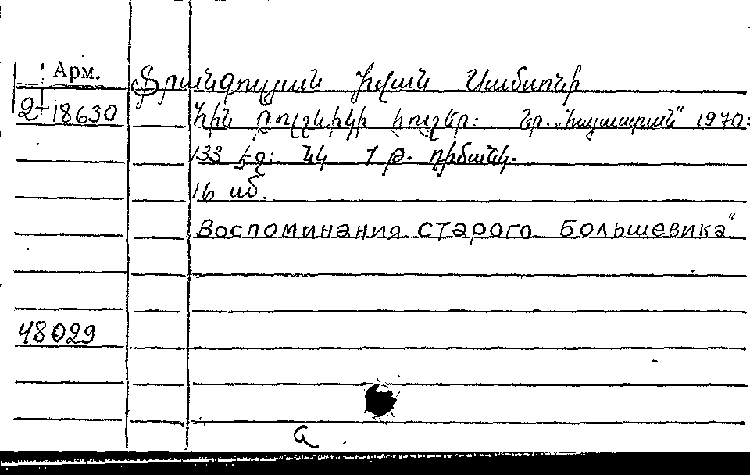 Арм.
2-18630
Ֆրանգուլյան Իվան Սամսոնի
Հին բոլշևիկի հուշեր: Եր. „Հայաստան“ 1970:
133 էջ: նկ 1 թ. դիմանկ.
16 սմ.
Воспоминания старого большевика"
48029
а